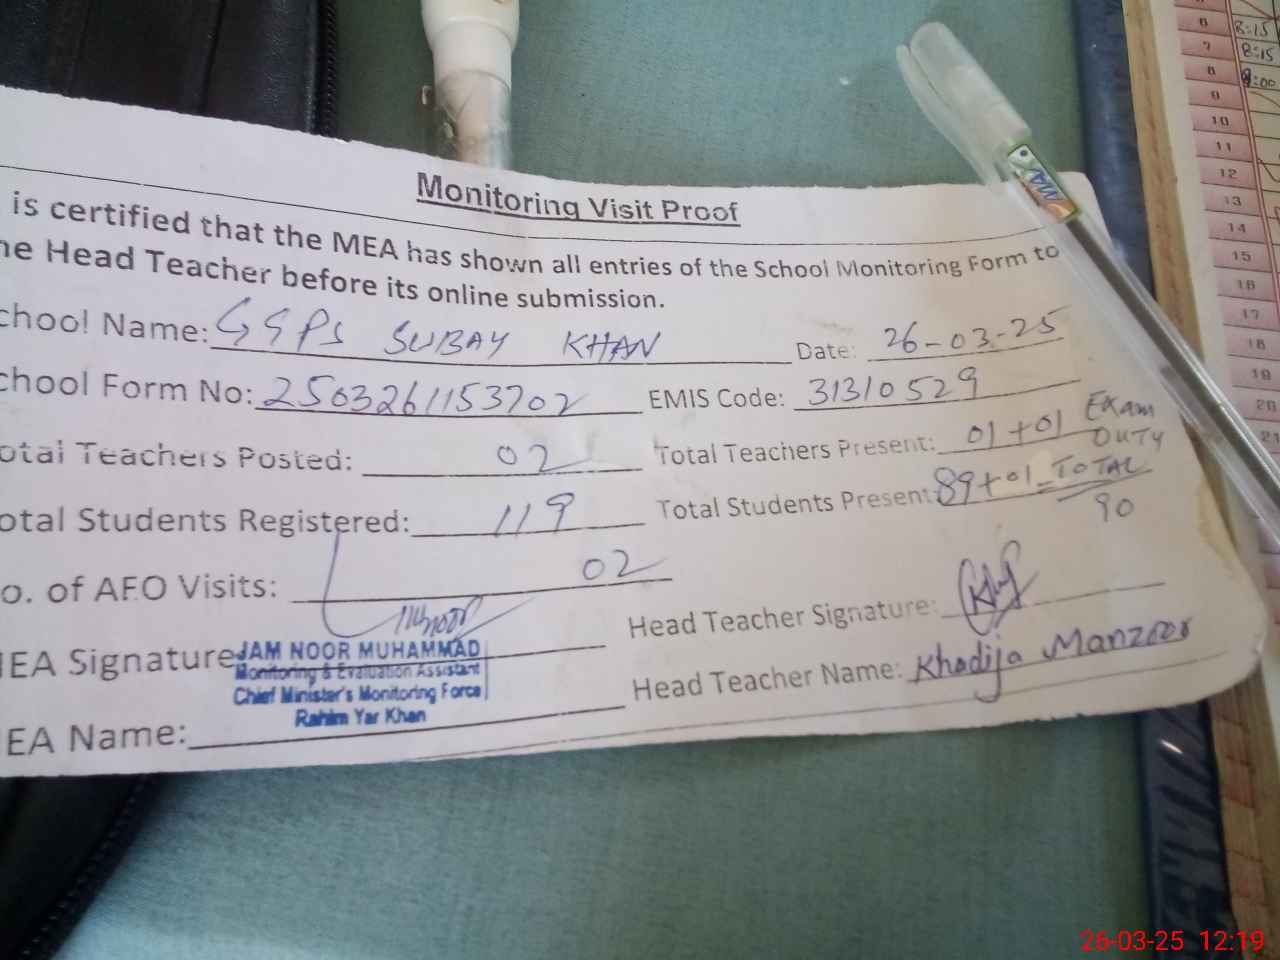 Monitoring Visit Proof
is certified that the MEA has shown all entries of the School Monitoring Form to
he Head Teacher before its online submission.
chool Name: GGPS SUBAY KHAN Date: 26-03-25
chool Form No: 2503261153702 EMIS Code: 31310529
otal Teachers Posted: 02 Total Teachers Present: 01+01 Exam DUTY
otal Students Registered: 119 Total Students Present: 89+01= TOTAL 90
o. of AEO Visits: 02
Head Teacher Signature:
MEA Signature
JAM NOOR MUHAMMAD
Monitoring & Evaluation Assistant
Chief Minister's Monitoring Force
Rahim Yar Khan
Head Teacher Name: Khadija Manzoor
EA Name:
6 8:15
7 8:15
8 9:00
9
10
11
12
13
14
15
16
17
18
19
20
21
26-03-25 12:19